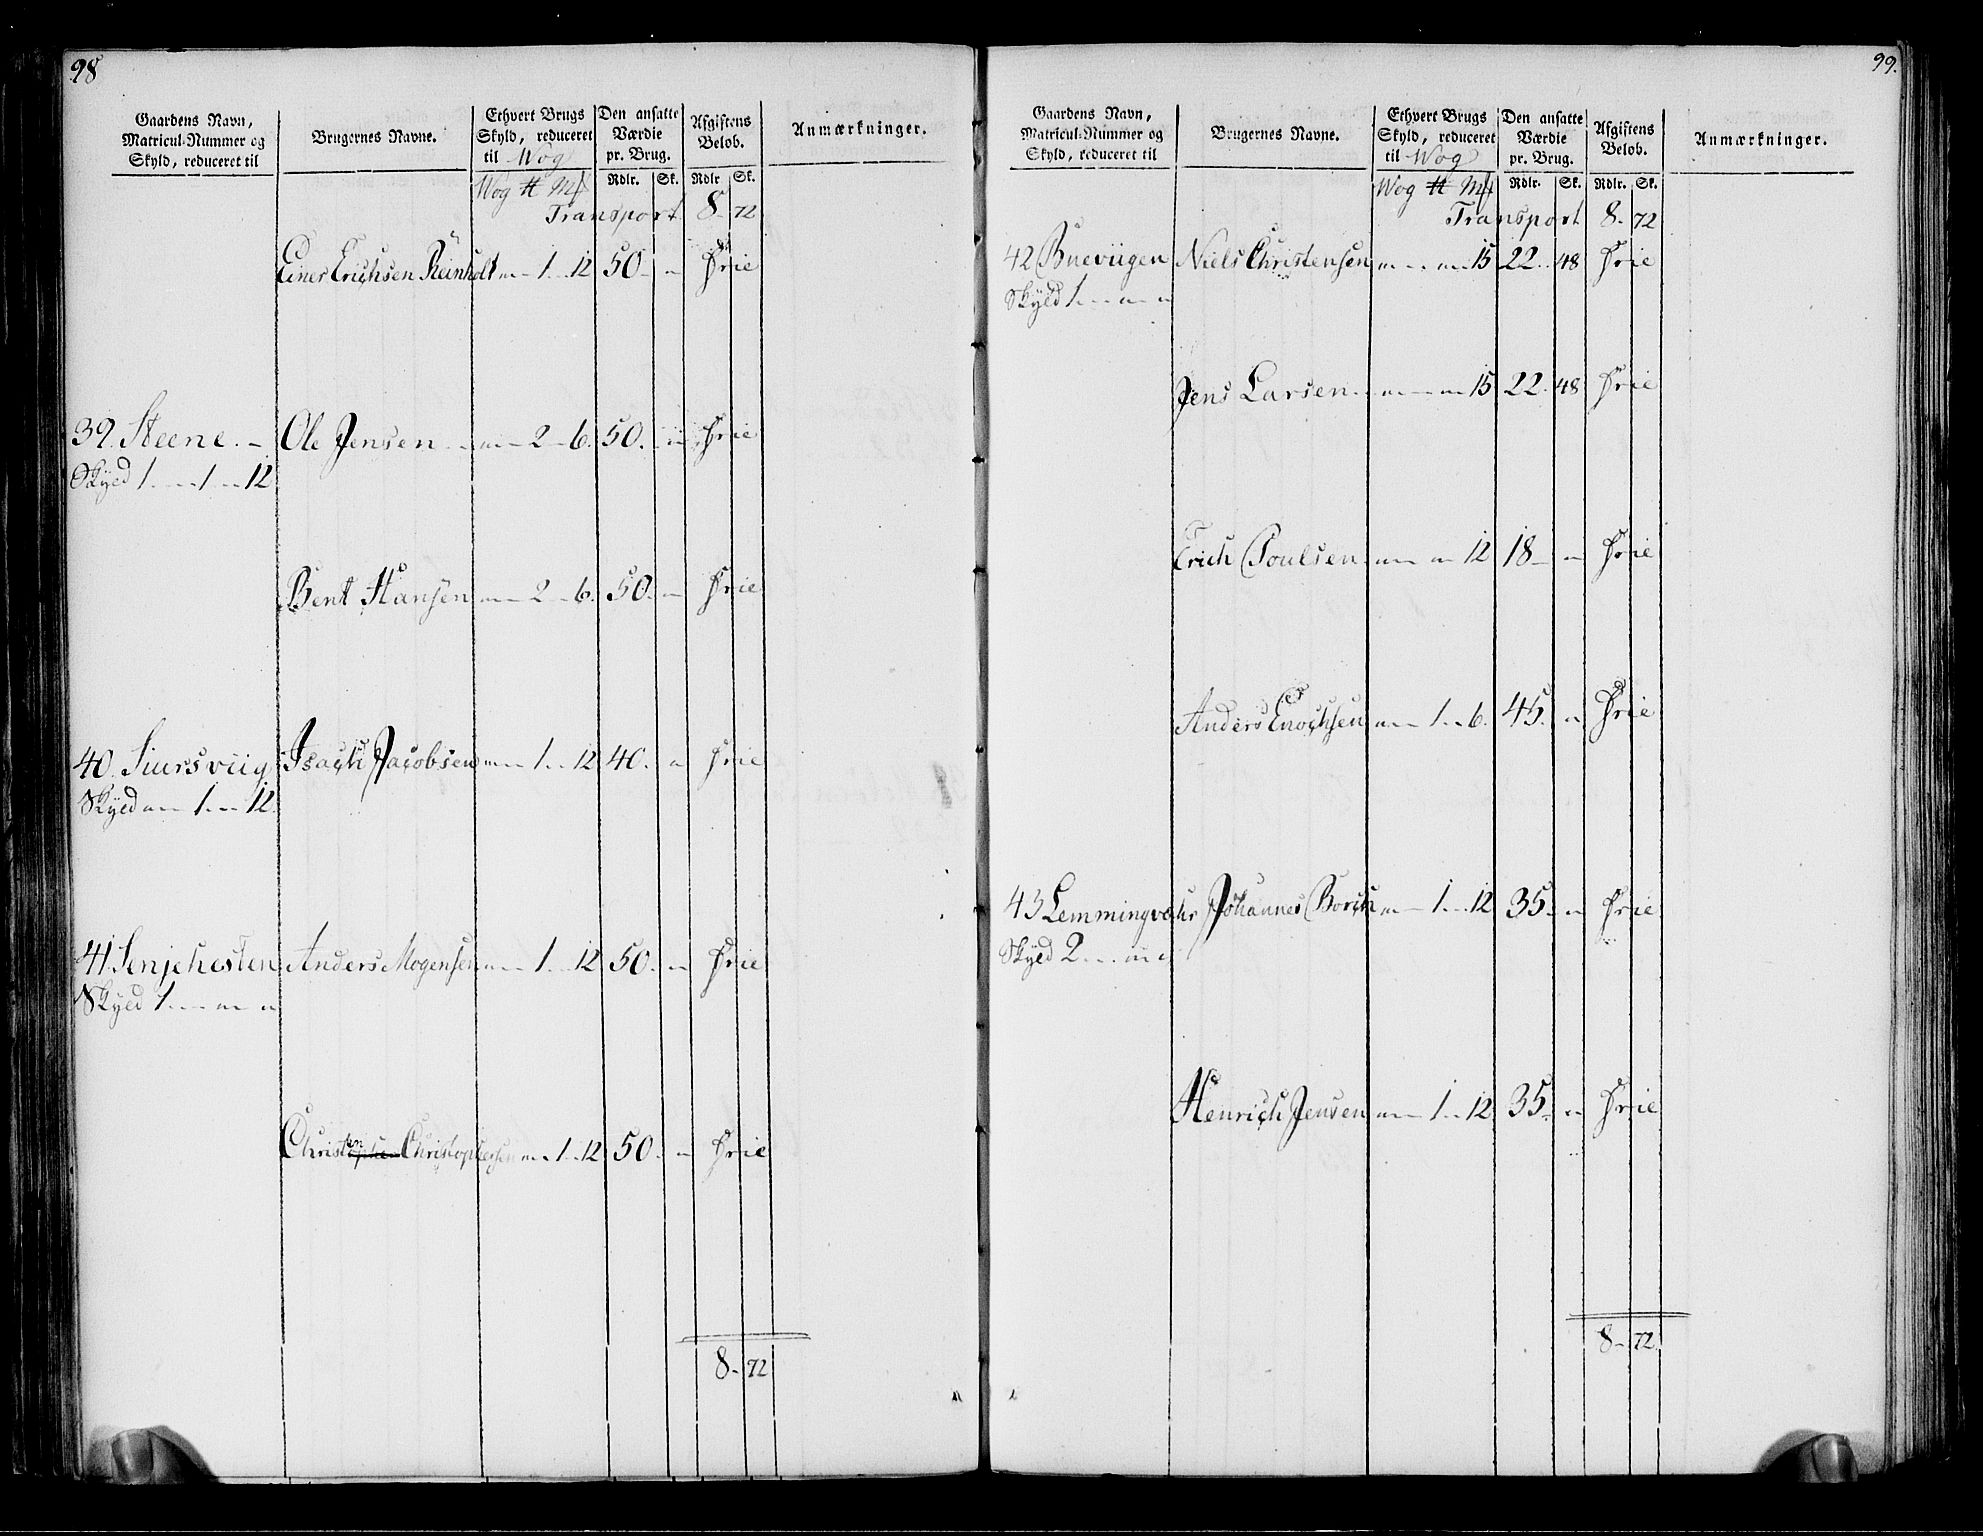 98
Gaardens Navn, Matricul-Nummer og Skyld, reduceret til
Brugernes Navne.
Ethvert Brugs Skyld, reduceret til Wog
Den ansatte Værdie pr. Brug.
Afgiftens Beløb.
Anmærkninger.
Wog ℔ Mk Rdlr. Sk. Rdlr Sk.
Transport 8 - 72
Einer Erichsen Reinholt " - 1 - 12 50 - " Frie
39 Steene. - Ole Jensen - " - 2 - 6. 50. - " Frie
Skyld 1 - - 1 - 12
Bent Hansen " - 2 - 6. 50. - " Frie
40 Siursviig Isach Jacobsen " - 1 - 12 40. - " Frie
Skyld " - 1 - 12.
41 Senjehesten Anders Mogensen " - 1 - 12 50. - " Frie
Skyld 1 - - " - "
Christen Christophersen " - 1 - 12 50. - " Frie
8 - 72
99.
Gaardens Navn, Matricul-Nummer og Skyld, reduceret til
Brugernes Navne.
Ethvert Brugs Skyld, reduceret til Wog
Den ansatte Værdie pr. Brug.
Afgiftens Beløb.
Anmærkninger.
Wog ℔ Mk Rdlr. Sk. Rdlr. Sk.
Transport 8 - 72
42 Bueviigen Niels Christensen " - " - 15 22 - 48 Frie
Skyld 1 - - " - "
Jens Larsen " - " - 15 22 - 48 Frie
Erich Poulsen " - " - 12 18 - " Frie
Anders Enochsen " - 1 - 6. 45. - " Frie
43 Lemmingvehr Johannes Borch " - 1 - 12 35 - " Frie
Skyld 2 - - " - "
Henrich Jensen " - 1 - 12 35 - " Frie
8 - 72.